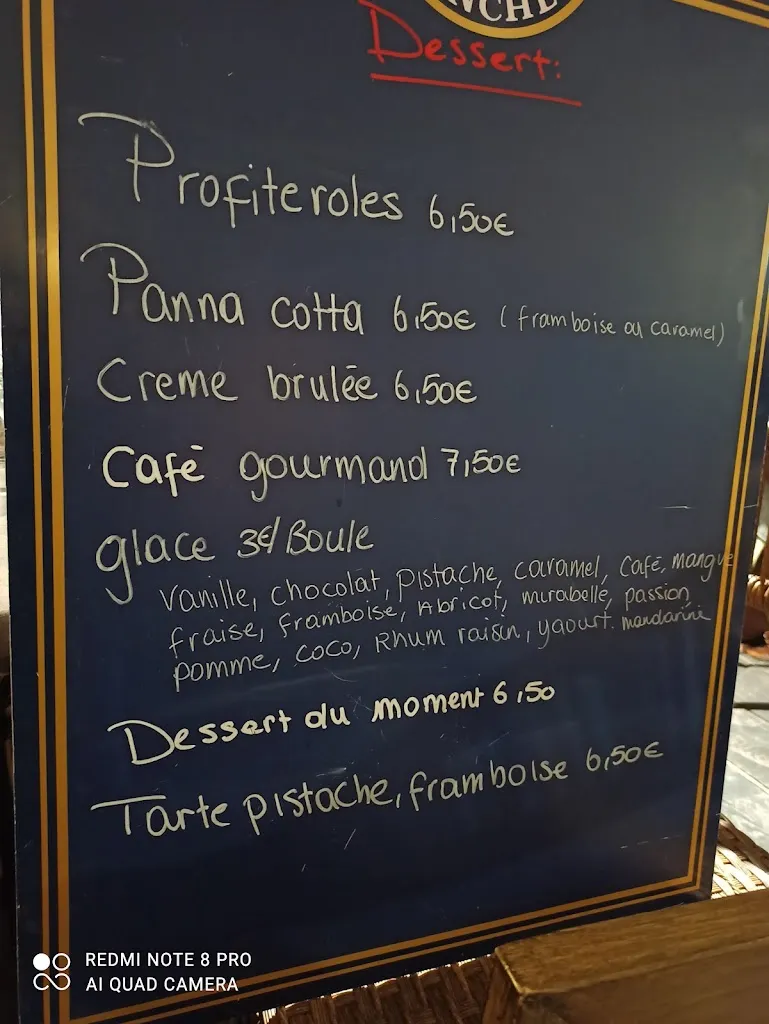 NCHE
Dessert:
Profiteroles 6,50€
Panna cotta 6,50€ (framboise ou caramel)
Creme brulée 6,50€
Café gourmand 7,50€
glace 3€/Boule
Vanille, chocolat, Pistache, caramel, Café, mangue
fraise, framboise, Abricot, mirabelle, passion
pomme, coco, Rhum raisin, yaourt. mandarine
Dessert du moment 6,50
Tarte pistache, framboise 6,50€
REDMI NOTE 8 PRO
AI QUAD CAMERA